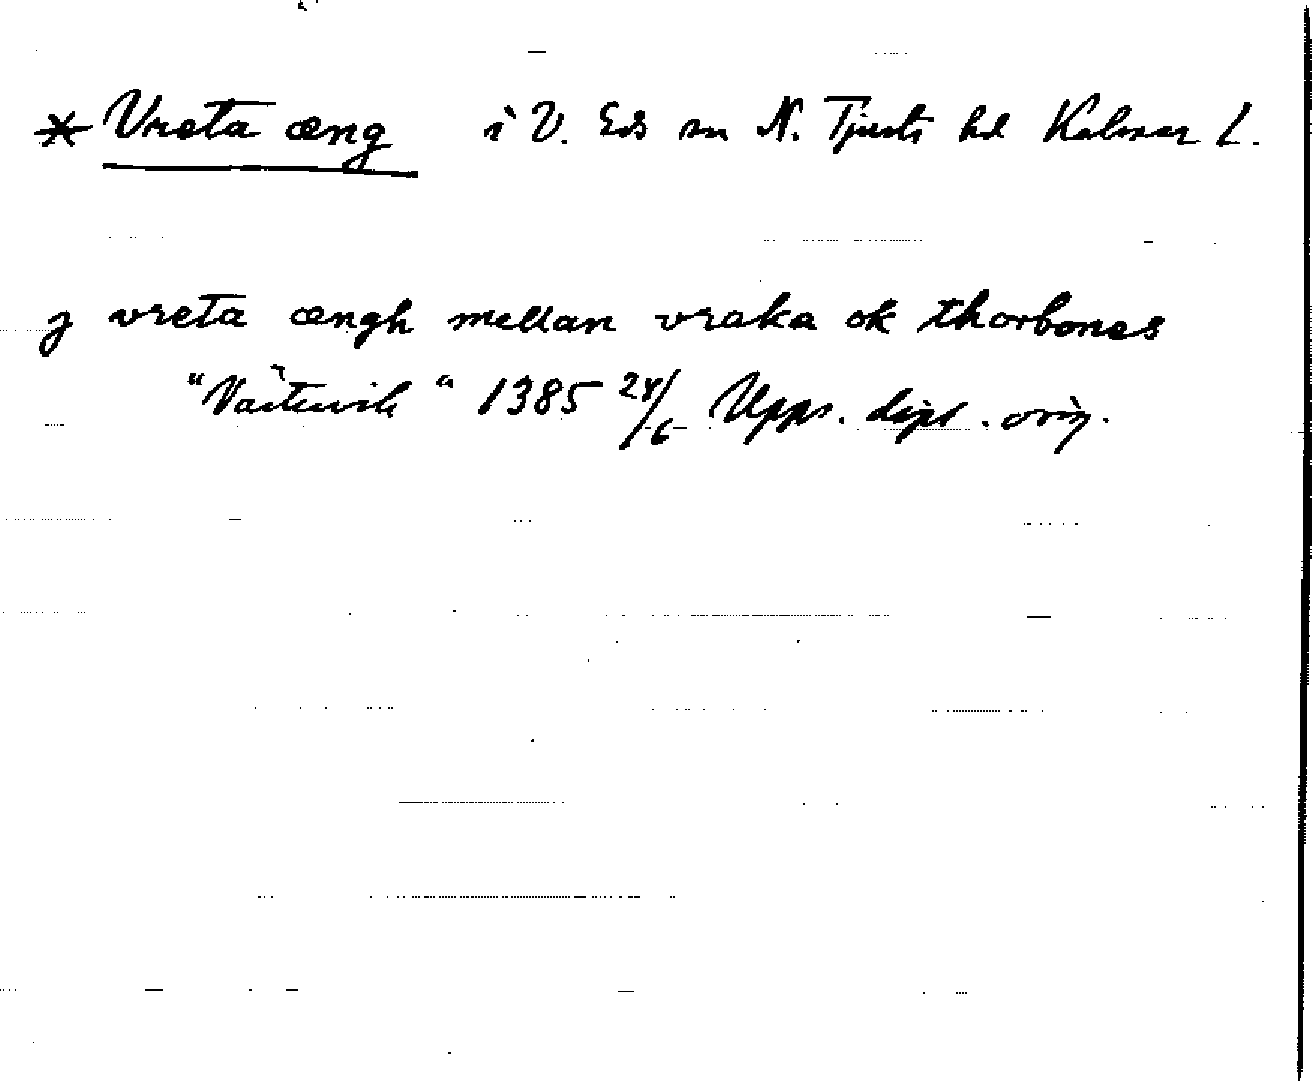 * Vreta æng i V. Eds sn N. Tjusts hd Kalmar L.
j vreta ængh mellan vraka ok thorbones
"Västervik" 1385 24/6 Upps. dipl. orig.